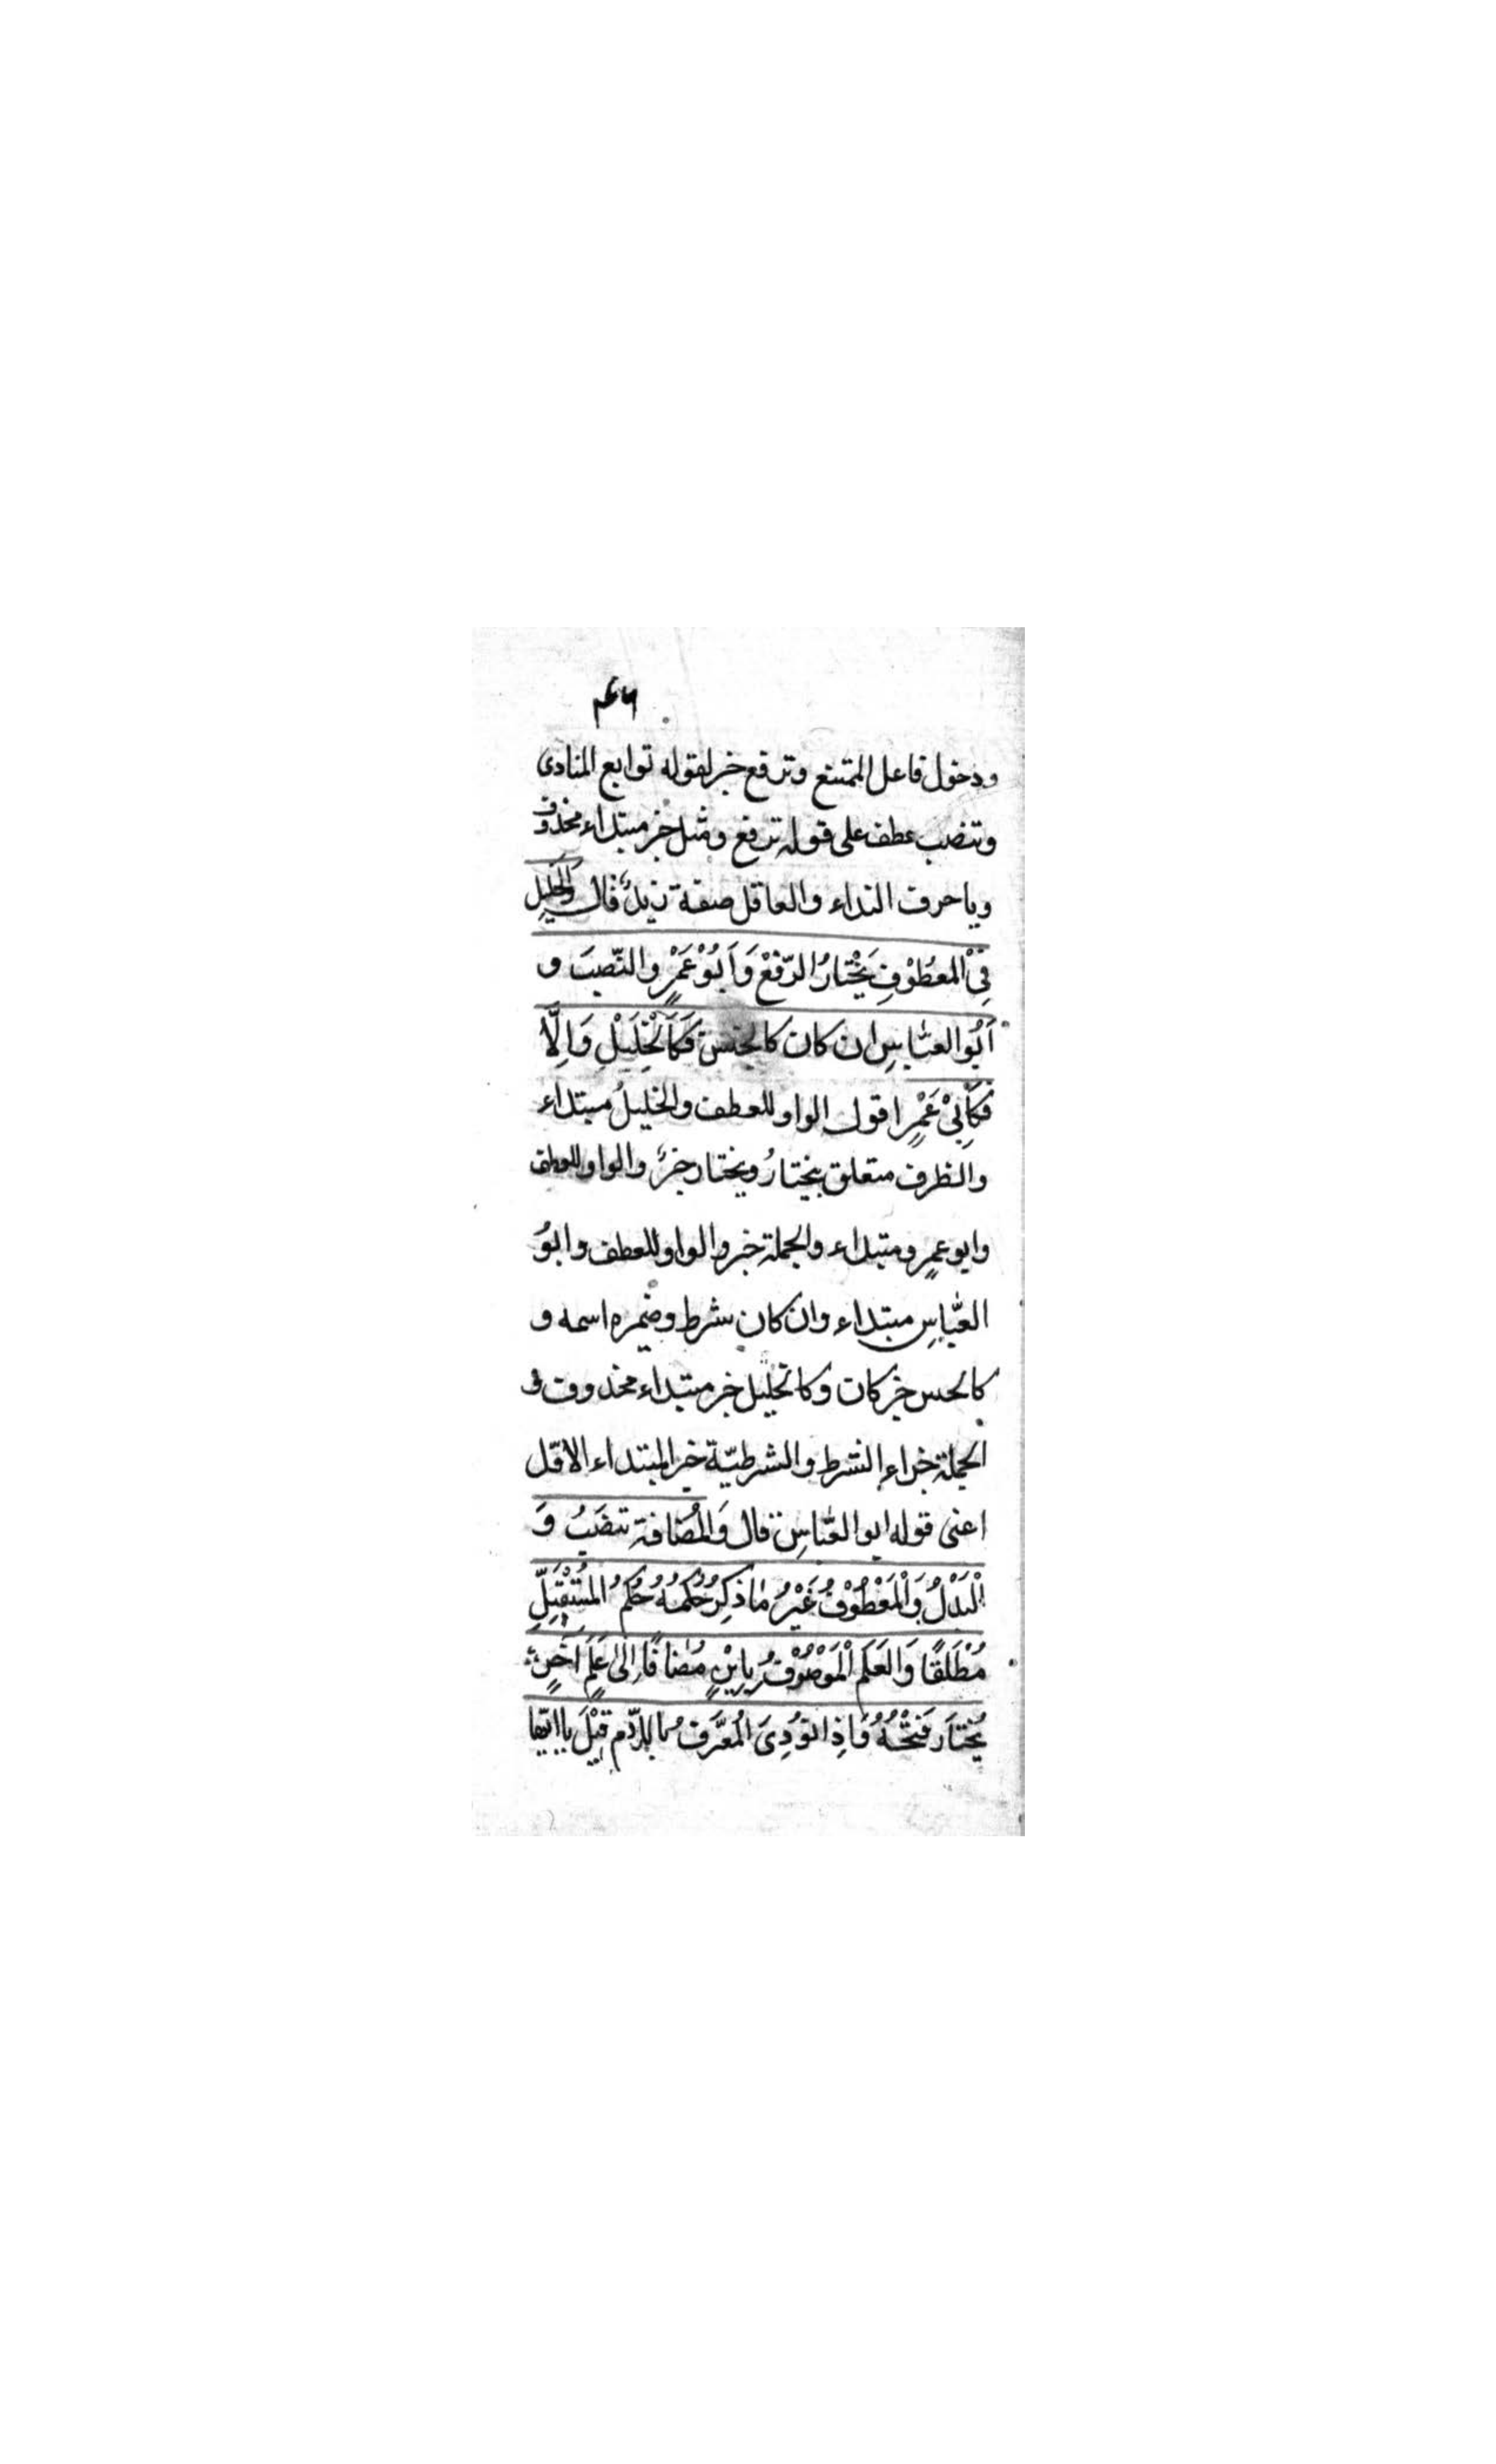 ودخول فاعل الممتنع وترفع خبر لقوله توابع المنادى
وتنصب عطف على قوله ترفع ومثل خبر مبتداء محذوف
ويا حرف النداء والعاقل صفة زيد قال والخليل
فِي الْمعطُوْفِ يَخْتَارُ الرّفعْ وَاَبُوْ عَمْرٍو النّصبَ و
اَبُو العبّاسِ ان كان كالحسن فَكَالْخَلِيْلِ وَاِلَّا
فكَاَبِيْ عَمْرٍ اقول الواو للعطف والخليلُ مبتداء
والظرف متعلق بيختارُ ويختار خبر والواو للعطف
وابو عمرٍو مبتداء والجملة خبر والواو للعطف وابوُ
العبّاسِ مبتداء وان كان شرط وضميره اسمه و
كالحسن خبر كان وكالخليل خبر مبتداء محذوف و
الجملة جزاء الشرط والشرطيّة خبر المبتداء الاوّل
اعنى قوله ابو العبّاسِ قال وَالمُضَافة تنصَبُ وَ
الْبَدْلُ وَالْمَعْطُوْفُ غَيْرُ مَا ذُكِرَ حُكْمُهُ حُكمُ المُسْتَقِلِّ
مُطْلَقًا وَالعَلَمُ الْمَوْصُوْفُ بِاِبْنٍ مُضَافًا اِلىٰ عَلَمٍ آخَرٍ
يُختَار فَتْحُهُ وَاِذا نُوْدِىَ المُعَرَّفُ باللّام قِيْلَ يا ايّها